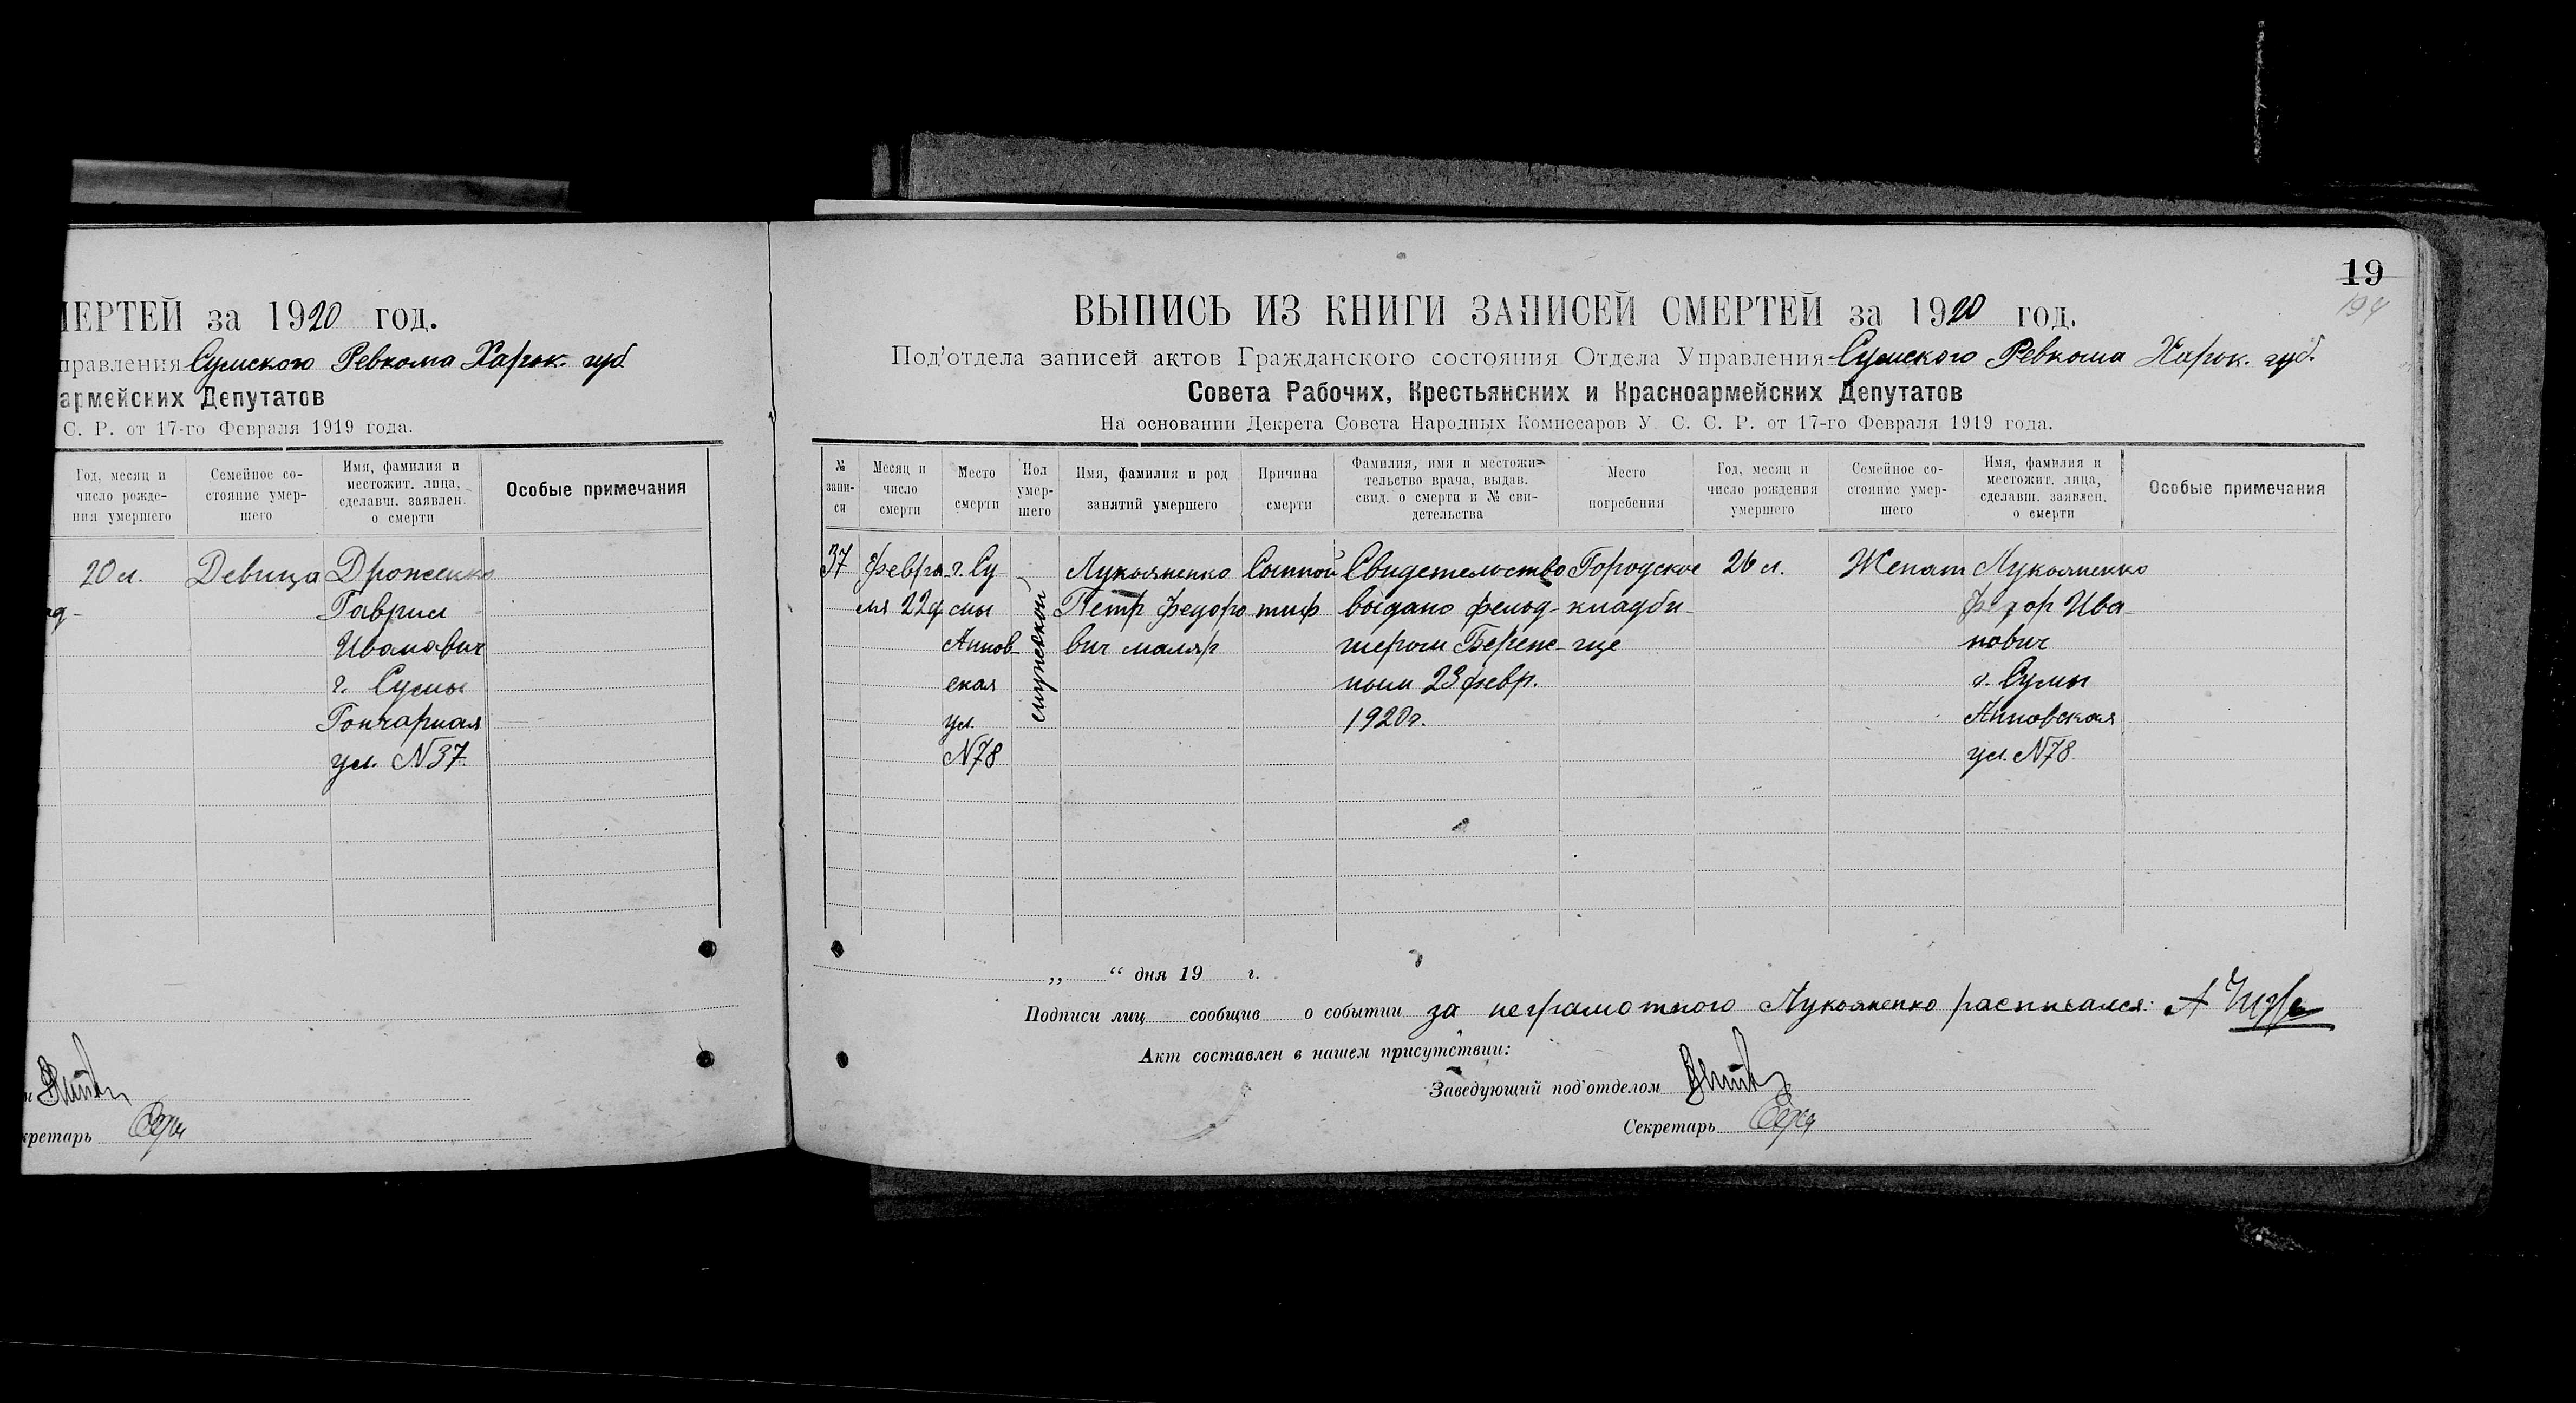 МЕРТЕЙ за 1920 год.
правления Сумского Ревкома Харьк. губ
армейских Депутатов
С. Р. от 17-го Февраля 1919 года.
Год, месяц и число рожде- ния умершего
Семейное со- стояние умер- шего
Имя, фамилия и местожит. лица, сделавш. заявлен. о смерти
Особые примечания
20 л. Девица Дроженко
Гаврил
Иванович
г. Сумы
Гончарная
ул. N37
кретарь
19
194
ВЫПИСЬ ИЗ КНИГИ ЗАПИСЕЙ СМЕРТЕЙ за 1920 год.
Под'отдела записей актов Гражданского состояния Отдела Управления Сумского Ревкома Харьк. губ.
Совета Рабочих, Крестьянских и Красноармейских Депутатов
На основании Декрета Совета Народных Комиссаров У. С. С. Р. от 17-го Февраля 1919 года.
№ запи- си
Месяц и число смерти
Место смерти
Пол умер- шего
Имя, фамилия и род занятий умершего
Причина смерти
Фамилия, имя и местожи- тельство врача, выдав. свид. о смерти и № сви- детельства
Место погребения
Год, месяц и число рождения умершего
Семейное со- стояние умер- шего
Имя, фамилия и местожит. лица, сделавш. заявлен. о смерти
Особые примечания
37 Февра- г. Су Лукьяненко Сыпной Свидетельство Городское 26 л. Женат Лукьяненко
ля 22д мы Петр Федоро тиф выдано фельд- кладби- Федор Ива-
Аннов- вич маляр шером Берене- ще нович
ская мужской ным 23 февр. г. Сумы
ул. 1920 г. Анновская
N78 ул. N78
„ “ дня 19 г.
Подписи лиц сообщив о событии за неграмотного Лукьяненко расписался: А
Акт составлен в нашем присутствии:
Заведующий под'отделом
Секретарь